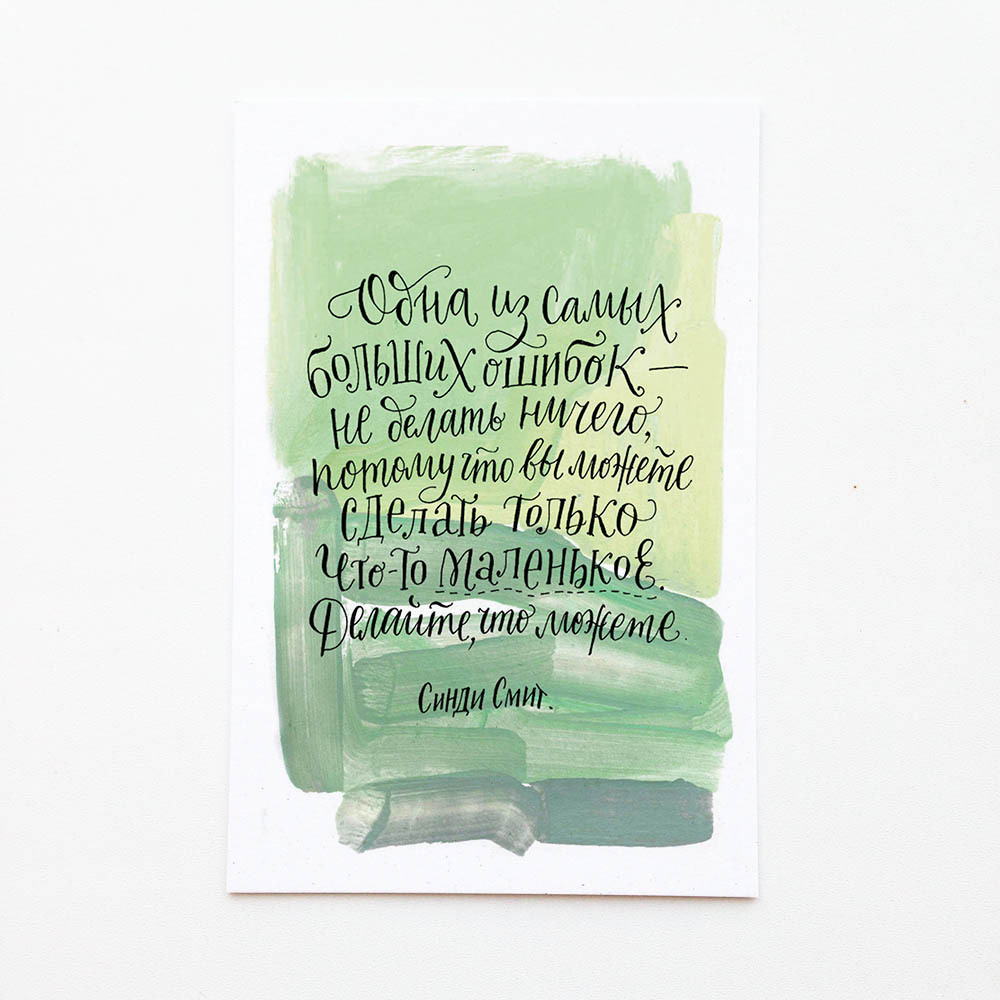 Одна из самых
больших ошибок —
не делать ничего,
потому что вы можете
сделать только
что-то маленькое.
Делайте, что можете.
Синди Смит.